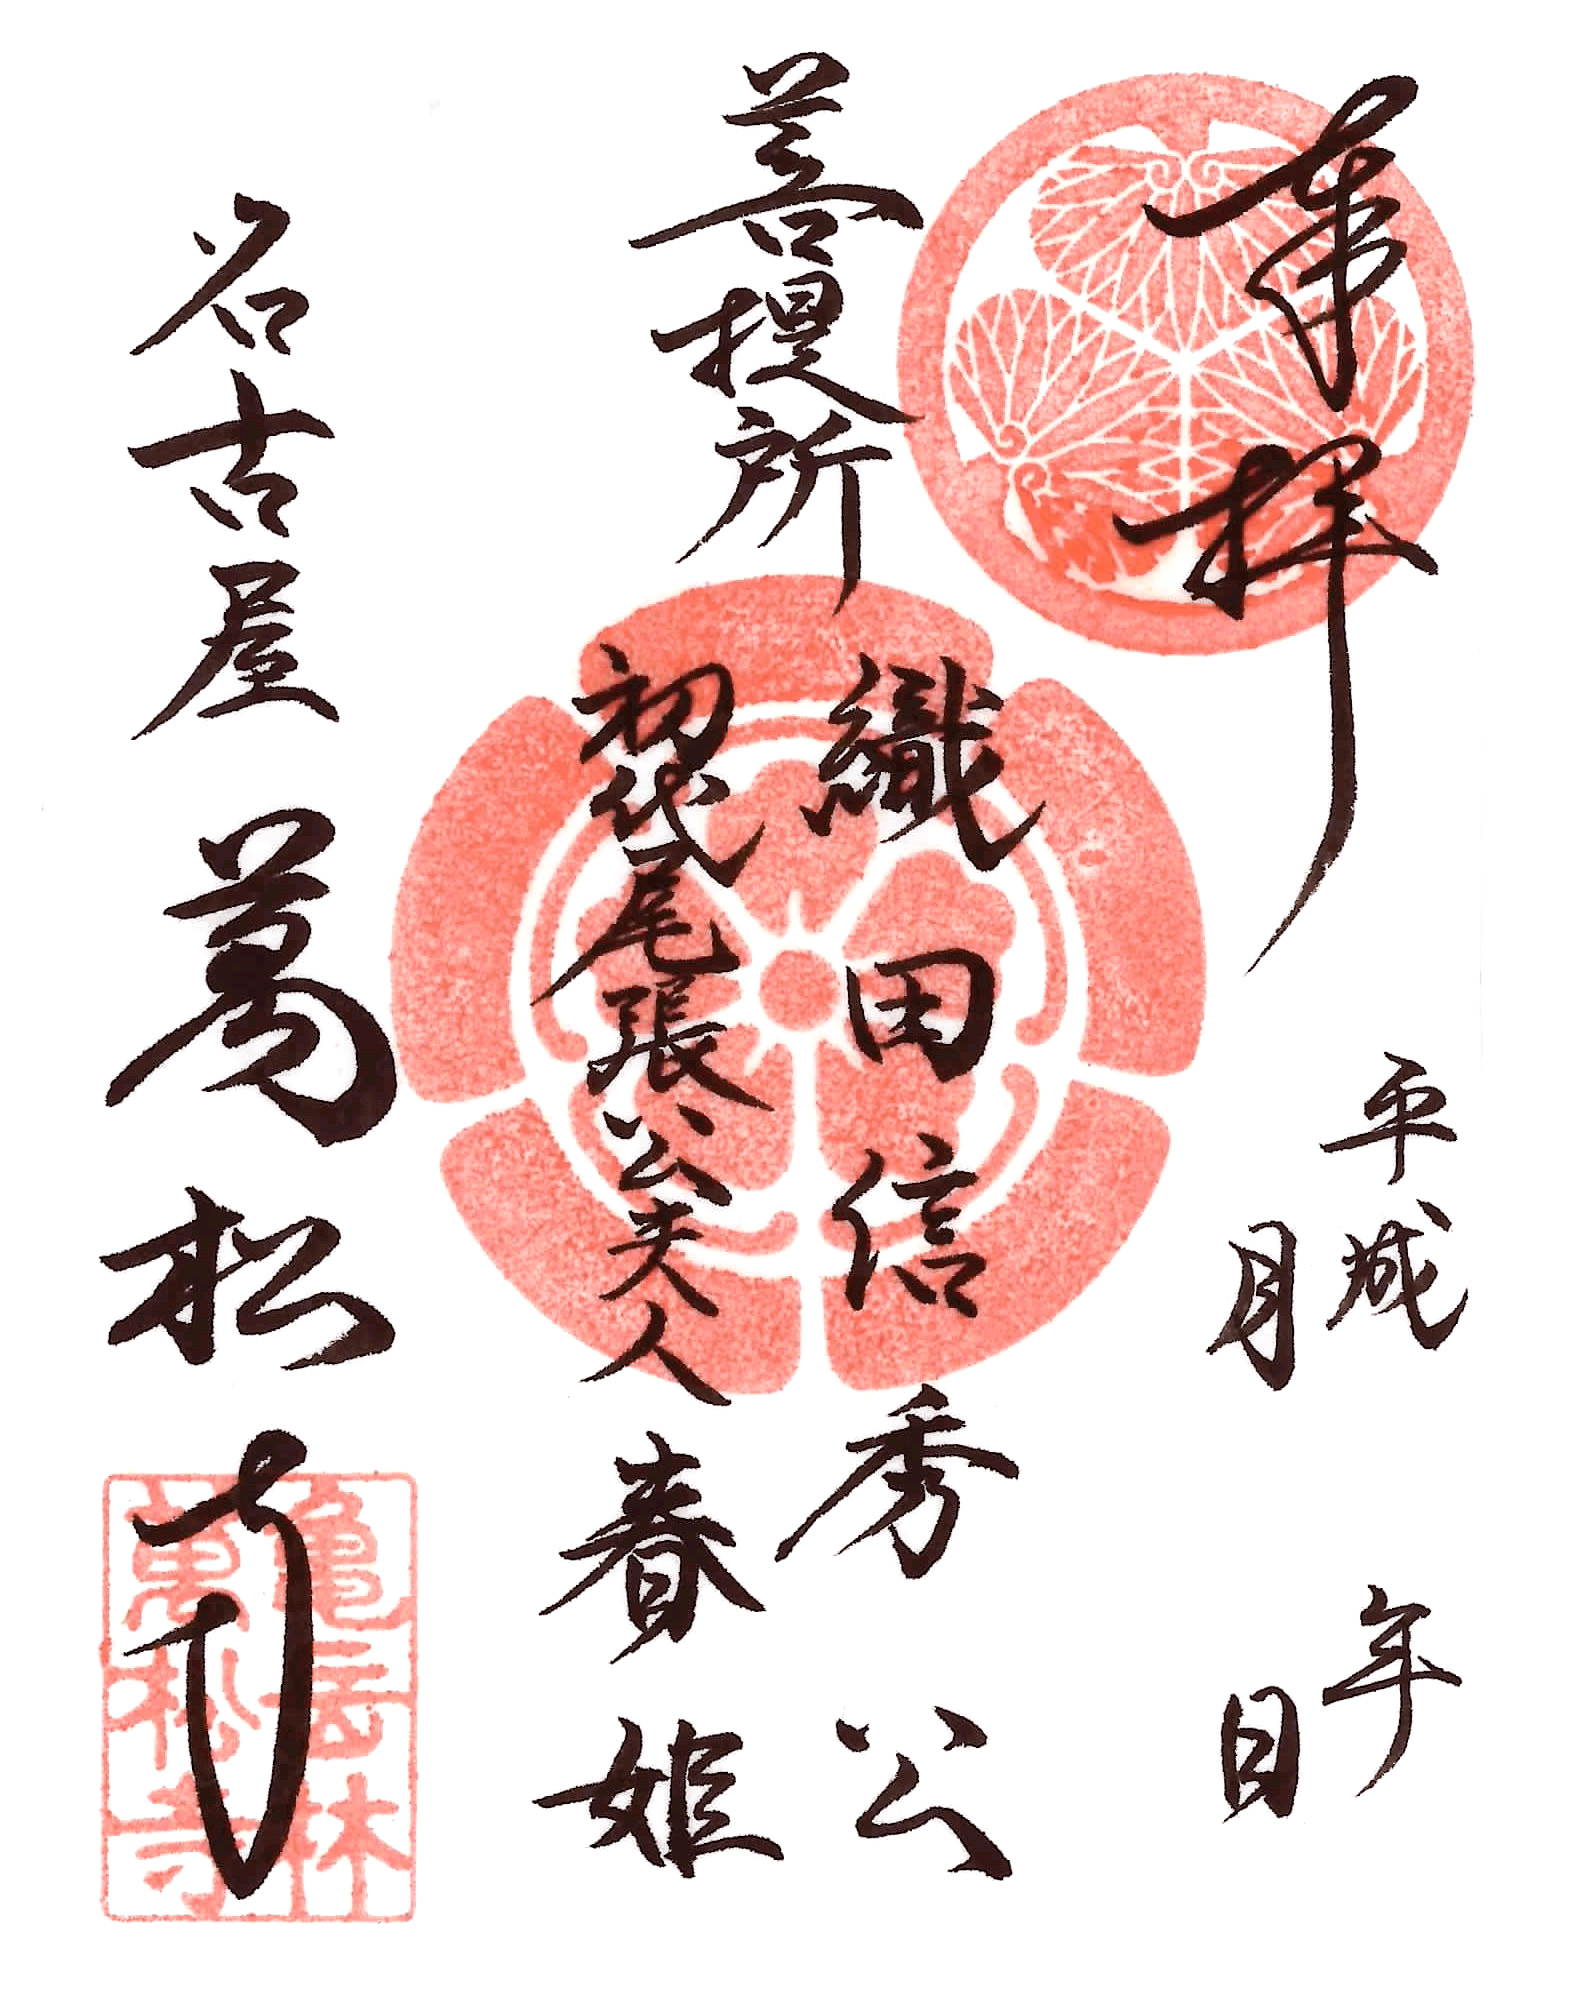 奉拝
平成 年
月 日
菩提所
織田信秀公
初代尾張公夫人 春姫
名古屋 萬松寺
亀岳林
萬松寺